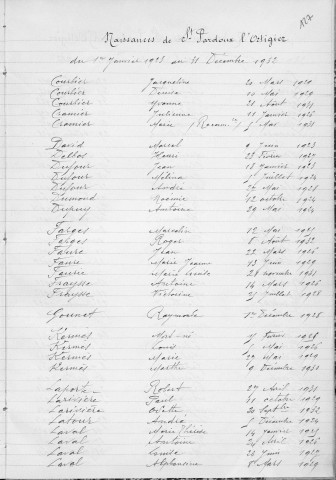 127
Naissances de St Pardoux l'Ortigier
du 1er Janvier 1923 au 31 Décembre 1932
Courtier Jacqueline 20 Mars 1929
Courtier Denise 11 Mai 1920
Courtier Yvonne 21 Août 1931
Julienne 11 Janvier 1926
Marie Mai 1931
David Marcel 9 Juin 1923
Henri 23 Février 1927
Dufour Jean 18 Janvier 1923
Dufour Mélina Juillet 1924
Dufour André 27 Mai 1928
Dumond Noémie 12 octobre 1924
Dupuy Antoine 29 Mai 1924
Farges Marcelin 12 Mai
Farges Roger 8 Août 1932
Faure Jean 22 Mars
Faure Marie Jeanne 13 Juin 1929
Faurie Marie Louise 28 novembre 1931
Fraysse Antoine 14 Mars 1926
Fraysse Victorine 21 Juillet 1928
Gounet Raymonde 1er Décembre 1928
Kermes Mort-né Février 1928
Kermes Louis Mai 1926
Kermes Marie 29 Mai 1929
Kermes Marthe 9 Décembre 1931
Laporte Robert 27 Avril 1931
Larivière Paul 31 octobre 1929
Larivière Odette 20 Septbre 1932
Latour André Décembre 1924
Laval Marie Thérèse 14 Janvier 1925
Laval Antoine 21 Avril 1926
Laval Louise 28 Juin 1927
Laval Alphonsine 8 Mars 1929